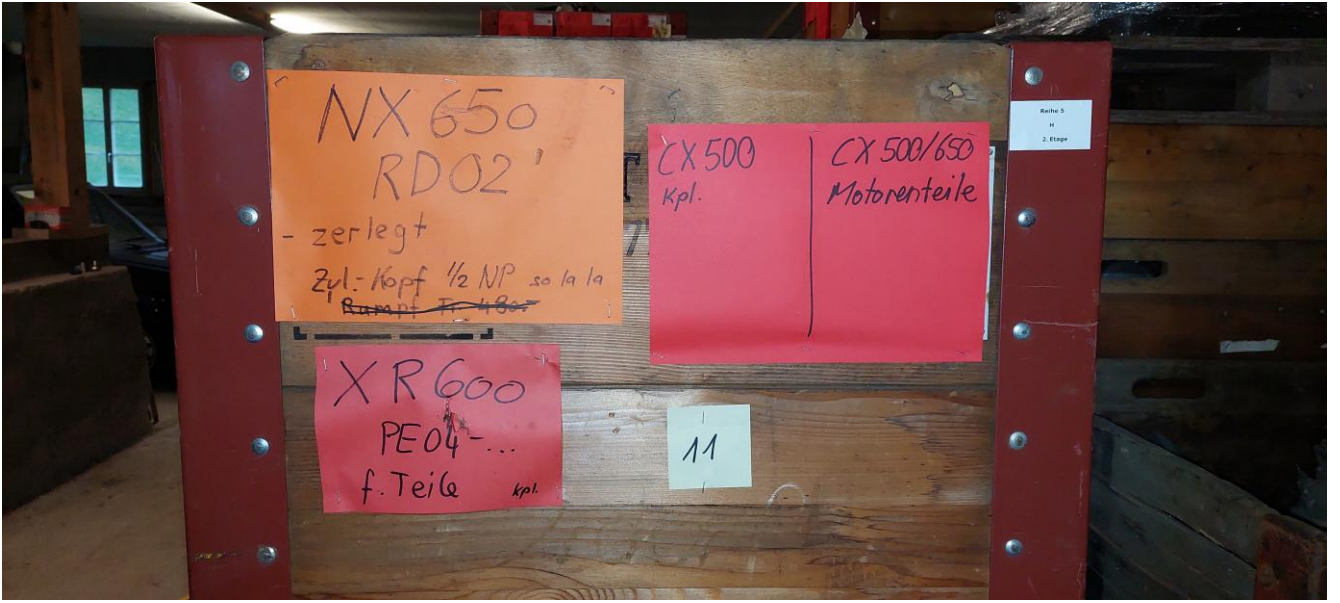 NX 650
RD02
- zerlegt
Zyl.-Kopf 1/2 NP so la la
Rumpf Fr. 480.-
XR600
PE04-...
f. Teile kpl.
CX500
kpl.
CX500/650
Motorenteile
11
Reihe 5
H
2. Etage